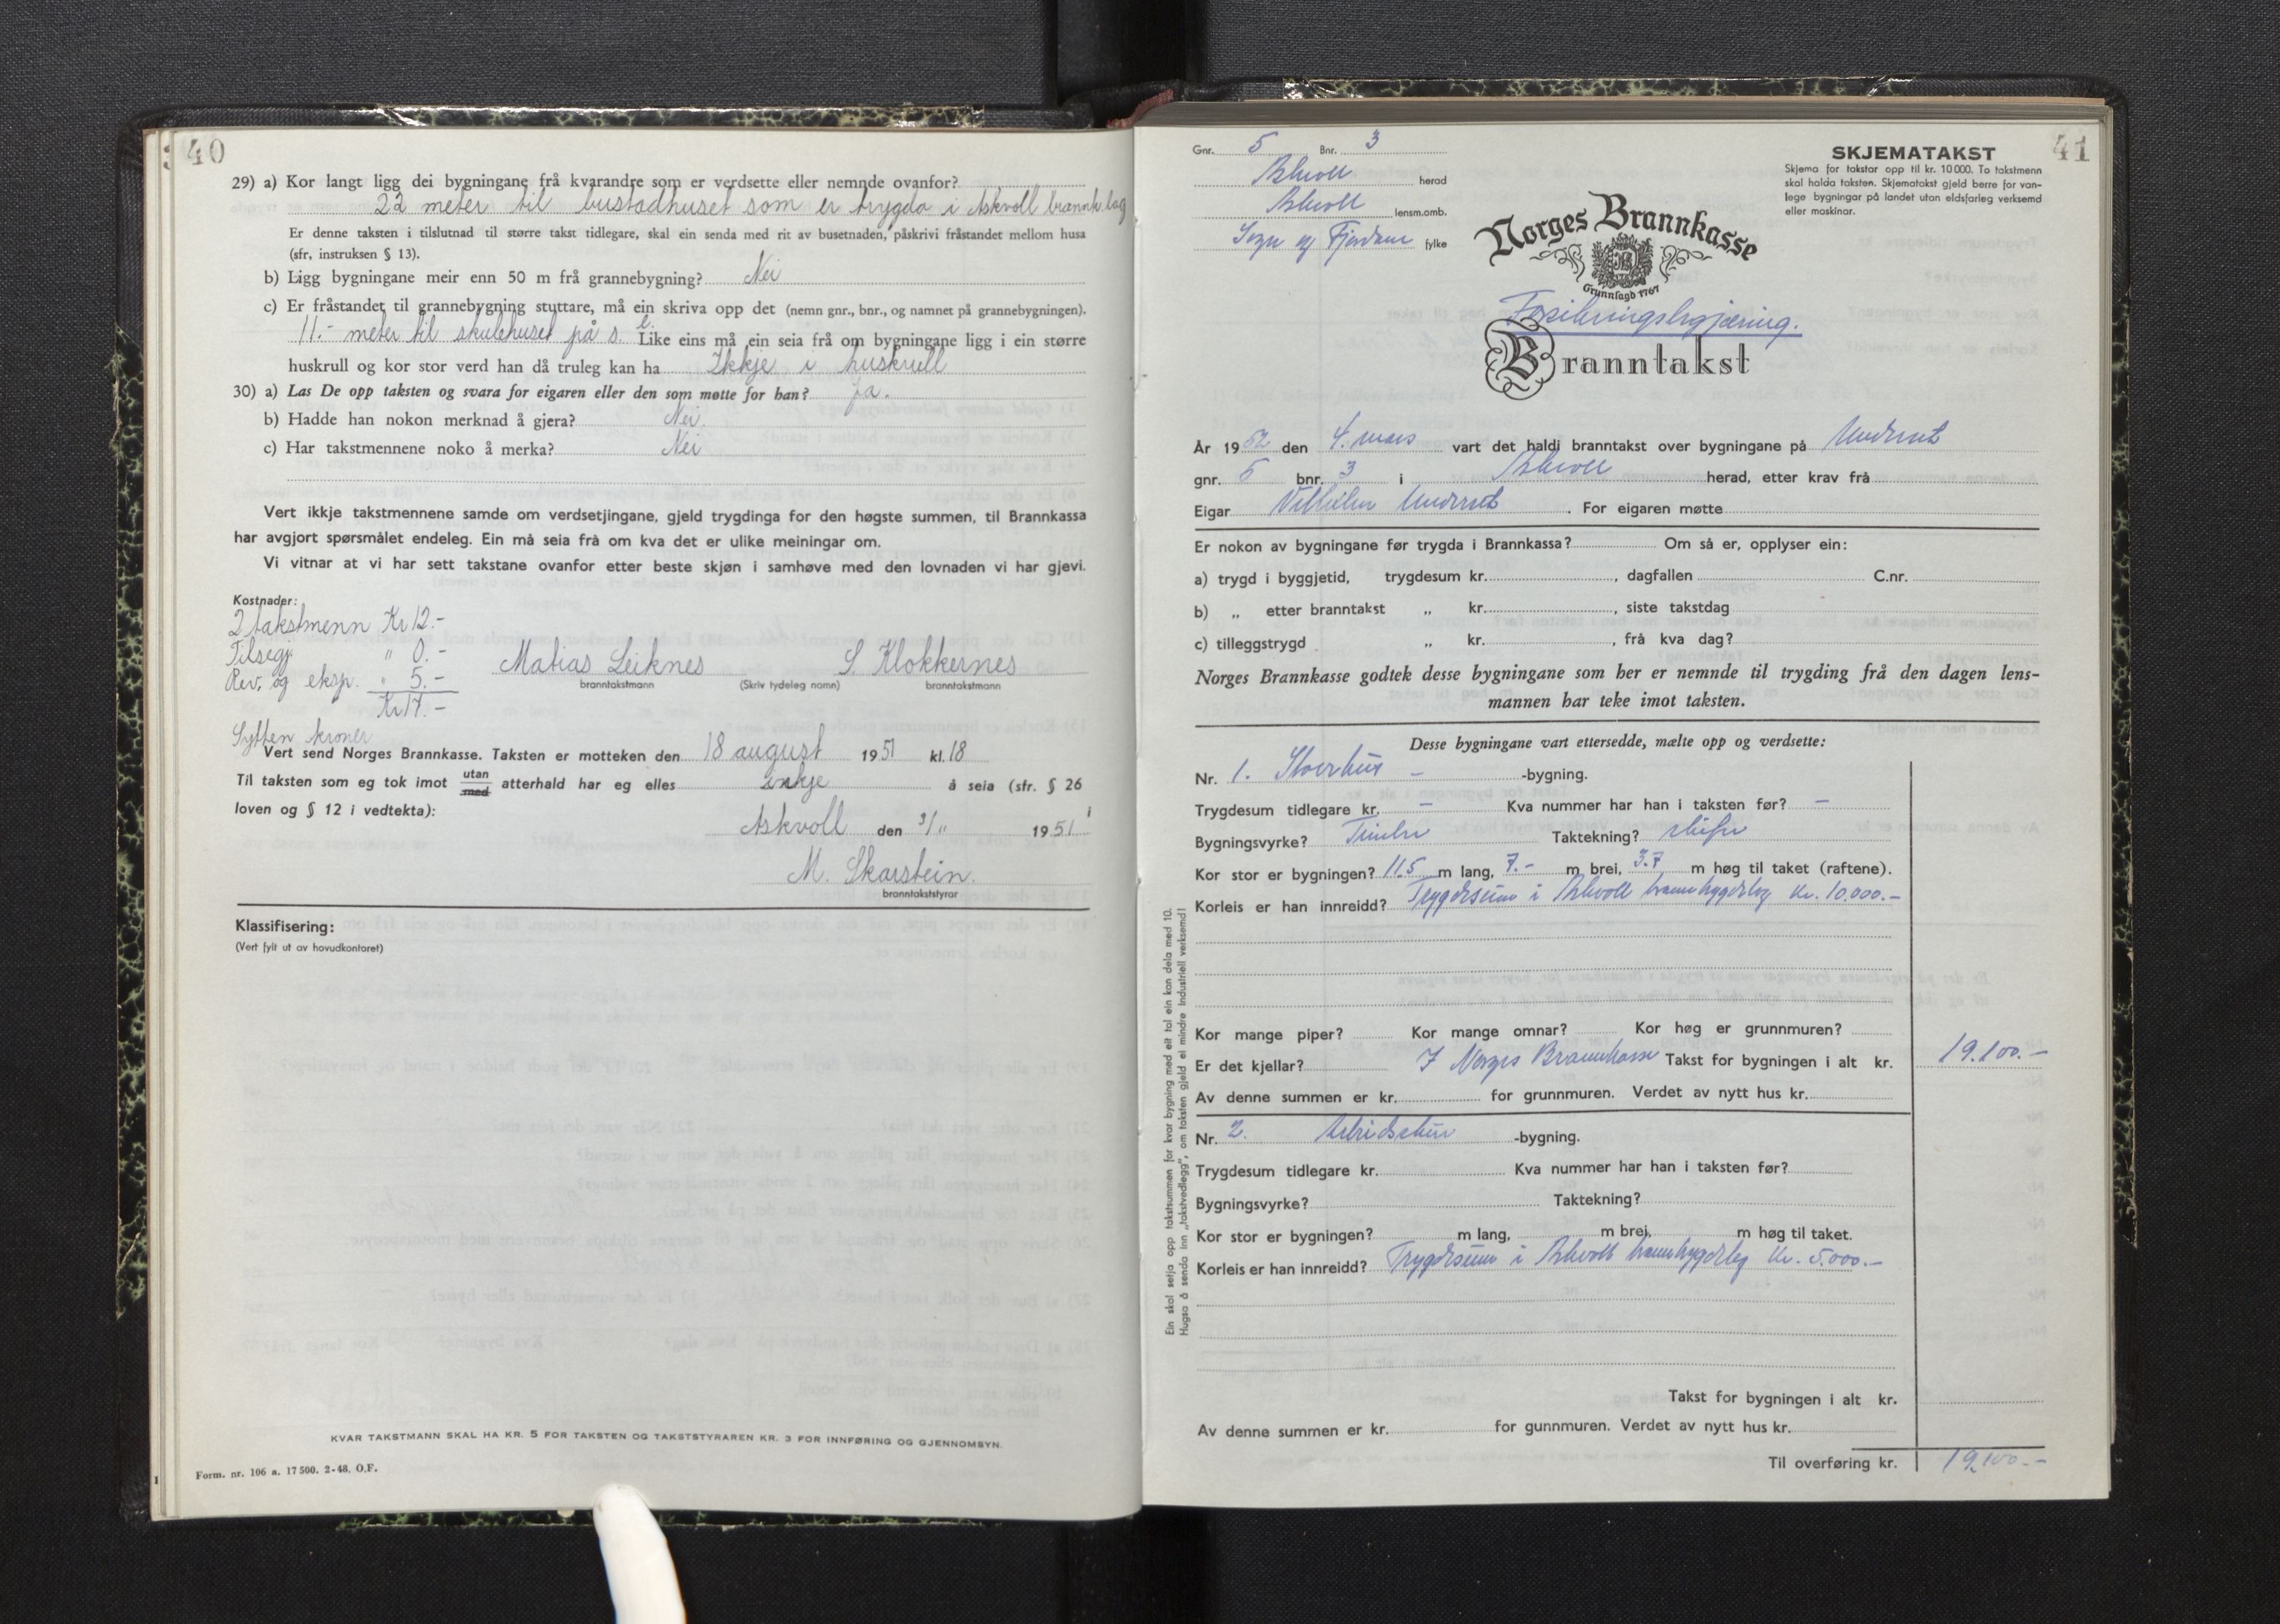 40
29) a) Kor langt ligg dei bygningane frå kvarandre som er verdsette eller nemnde ovanfor?
22 meter til bustadhuset som er trygda i Askvoll brannk.lag
Er denne taksten i tilslutnad til større takst tidlegare, skal ein senda med rit av busetnaden, påskrivi fråstandet mellom husa
(sfr, instruksen § 13).
b) Ligg bygningane meir enn 50 m frå grannebygning? Nei
c) Er fråstandet til grannebygning stuttare, må ein skriva opp det (nemn gnr., bnr., og namnet på grannebygningen).
11.- meter til skulehuset på s. Like eins må ein seia frå om bygningane ligg i ein større
huskrull og kor stor verd han då truleg kan ha Ikkje i huskrull
30) a) Las De opp taksten og svara for eigaren eller den som møtte for han? Ja.
b) Hadde han nokon merknad å gjera? Nei.
c) Har takstmennene noko å merka? Nei
Vert ikkje takstmennene samde om verdsetjingane, gjeld trygdinga for den høgste summen, til Brannkassa
har avgjort spørsmålet endeleg. Ein må seia frå om kva det er ulike meiningar om.
Vi vitnar at vi har sett takstane ovanfor etter beste skjøn i samhøve med den lovnaden vi har gjevi.
Kostnader:
2 takstmenn Kr 12.-
Tilsegj. " 0.-
Rev. og eksp. " 5.-
Kr 17.-
Matias Leiknes S. Klokkernes
branntakstmann (Skriv tydeleg namn) branntakstmann
Sytten kroner
Vert send Norges Brannkasse. Taksten er motteken den 18 august 1951 kl. 18
Til taksten som eg tok imot utan med atterhald har eg elles inkje å seia (sfr. § 26
loven og § 12 i vedtekta):
Askvoll den 3/11 1951
M. Skarstein.
branntakststyrar
Klassifisering:
(Vert fylt ut av hovudkontoret)
KVAR TAKSTMANN SKAL HA KR. 5 FOR TAKSTEN OG TAKSTSTYRAREN KR. 3 FOR INNFØRING OG GJENNOMSYN.
Form. nr. 106 a. 17 500. 2-48. O.F.
41
Gnr. 5 Bnr. 3
Askvoll herad
Askvoll lensm.omb.
Sogn og Fjordane fylke
SKJEMATAKST
Skjema for takstar opp til kr. 10 000. To takstmenn
skal halda taksten. Skjematakst gjeld berre for van-
lege bygningar på landet utan eldsfarleg verksemd
eller maskinar.
Norges Brannkasse
Grunnlagd 1767
Forsikringsbrgjæring.
Branntakst
År 1952 den 4. mars vart det haldi branntakst over bygningane på
gnr. 5 bnr. 3 i Askvoll herad, etter krav frå
Eigar Vilhelm . For eigaren møtte
Er nokon av bygningane før trygda i Brannkassa? Om så er, opplyser ein:
a) trygd i byggjetid, trygdesum kr. , dagfallen C.nr.
b) „ etter branntakst „ kr. , siste takstdag
c) tilleggstrygd „ kr. , frå kva dag?
Norges Brannkasse godtek desse bygningane som her er nemnde til trygding frå den dagen lens-
mannen har teke imot taksten.
Desse bygningane vart ettersedde, mælte opp og verdsette:
Nr. 1. - -bygning.
Trygdesum tidlegare kr. - Kva nummer har han i taksten før? -
Bygningsvyrke? Timbr Taktekning? skifer
Kor stor er bygningen? 11.5 m lang, 7.- m brei, 3.7 m høg til taket (raftene).
Korleis er han innreidd? Trygdesum i Askvoll brannbygdelag kr. 10.000.-
Kor mange piper? Kor mange omnar? Kor høg er grunnmuren?
Er det kjellar? I Norges Brannkasse Takst for bygningen i alt kr. 19.100.-
Av denne summen er kr. for grunnmuren. Verdet av nytt hus kr.
Nr. 2. Arbeidshus -bygning.
Trygdesum tidlegare kr. Kva nummer har han i taksten før?
Bygningsvyrke? Taktekning?
Kor stor er bygningen? m lang, m brei, m høg til taket.
Korleis er han innreidd? Trygdesum i Askvoll brannbygdelag kr. 5.000.-
Takst for bygningen i alt kr.
Av denne summen er kr. for gunnmuren. Verdet av nytt hus kr.
Til overføring kr. 19.100.-
Ein skal setja opp takstsummen for kvar bygning med eit tal ein kan dela med 10.
Hugsa å senda inn „takstvedlegg", om taksten gjeld ei mindre industriell verksemd!